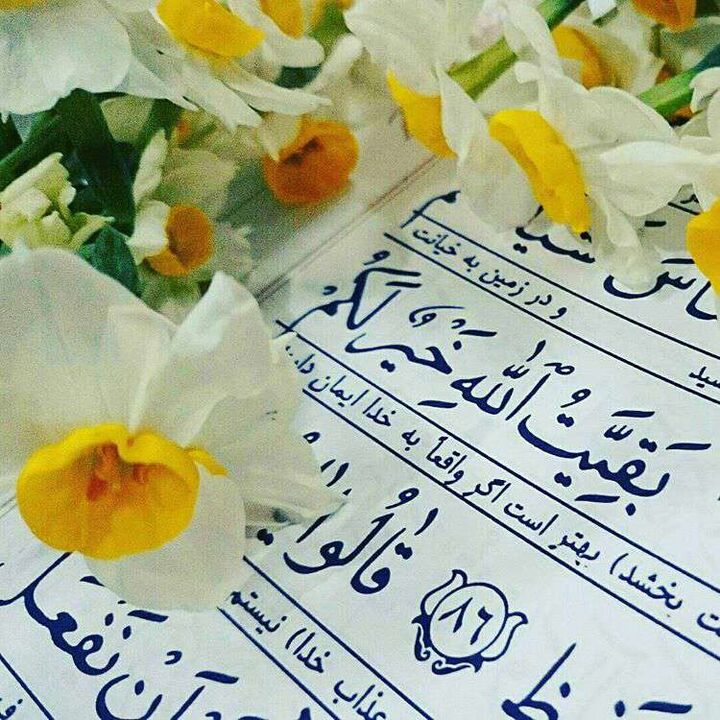 و در زمین به خیانت
بَقِيَّتُ اللّٰهِ خَيْرٌ لَكُمْ
بخشد) بهتر است اگر واقعاً به خدا ایمان
٨٦ قَالُوا
عذاب خدا) نیستم
أَنْ نَفْعَلَ